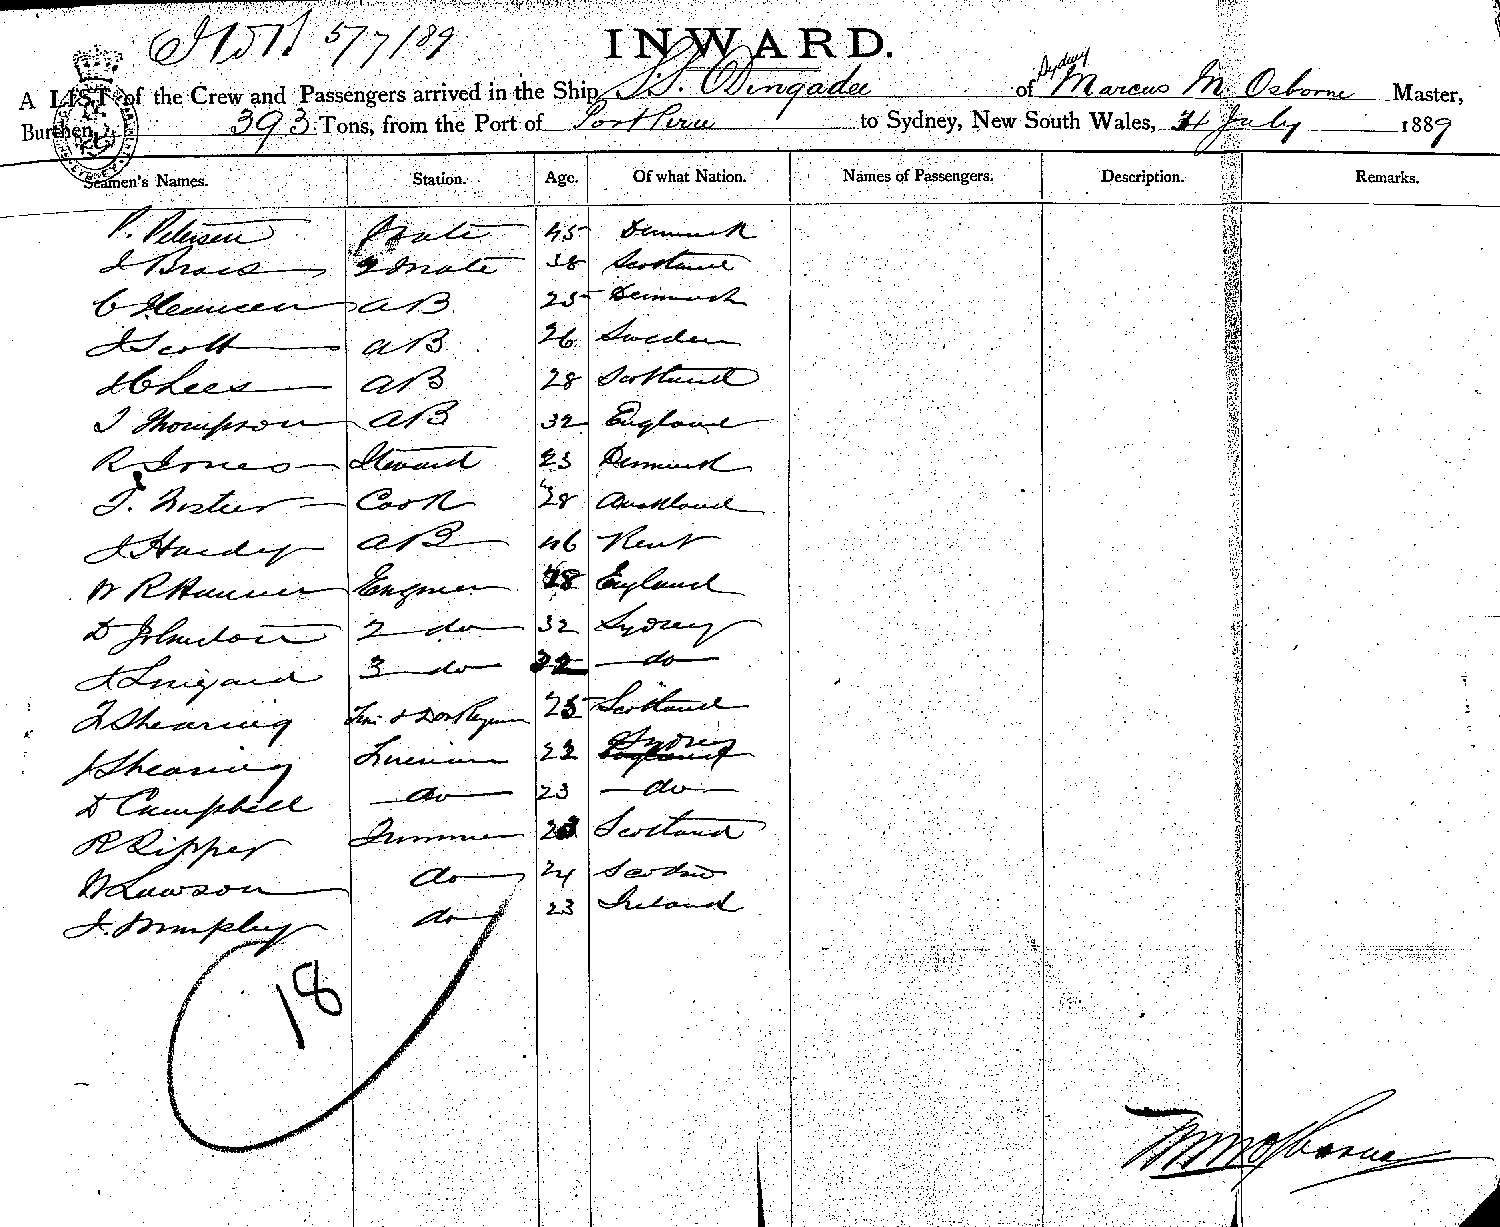 5/7/89
INWARD.
A LIST of the Crew and Passengers arrived in the Ship S.S. Dingadee of Sydney Marcus M Osborne Master,
Burthen, 393 Tons, from the Port of Port Pirie to Sydney, New South Wales, 4 July 1889
Seamen's Names. Station. Age. Of what Nation. Names of Passengers. Description. Remarks.
P. Petersen Mate 45 Denmark
J Brass 2 Mate 38 Scotland
C Hansen AB 25 Denmark
J Scott AB 26 Sweden
J C Lees AB 28 Scotland
J Thompson AB 32 England
R Jones Steward 23 Denmark
J. Cook 28 Auckland
J Hardy AB 46 Kent
W R Engineer 28 England
D Johnston 2 do 32 Sydney
3 do 32 do
Shearing 25 Scotland
J Shearing Fireman 22 Sydney
D Campbell do 23 do
R Ripper Trimmer 23 Scotland
W Lawson do 24
J. Murphy do 23 Ireland
18
M M Osborne